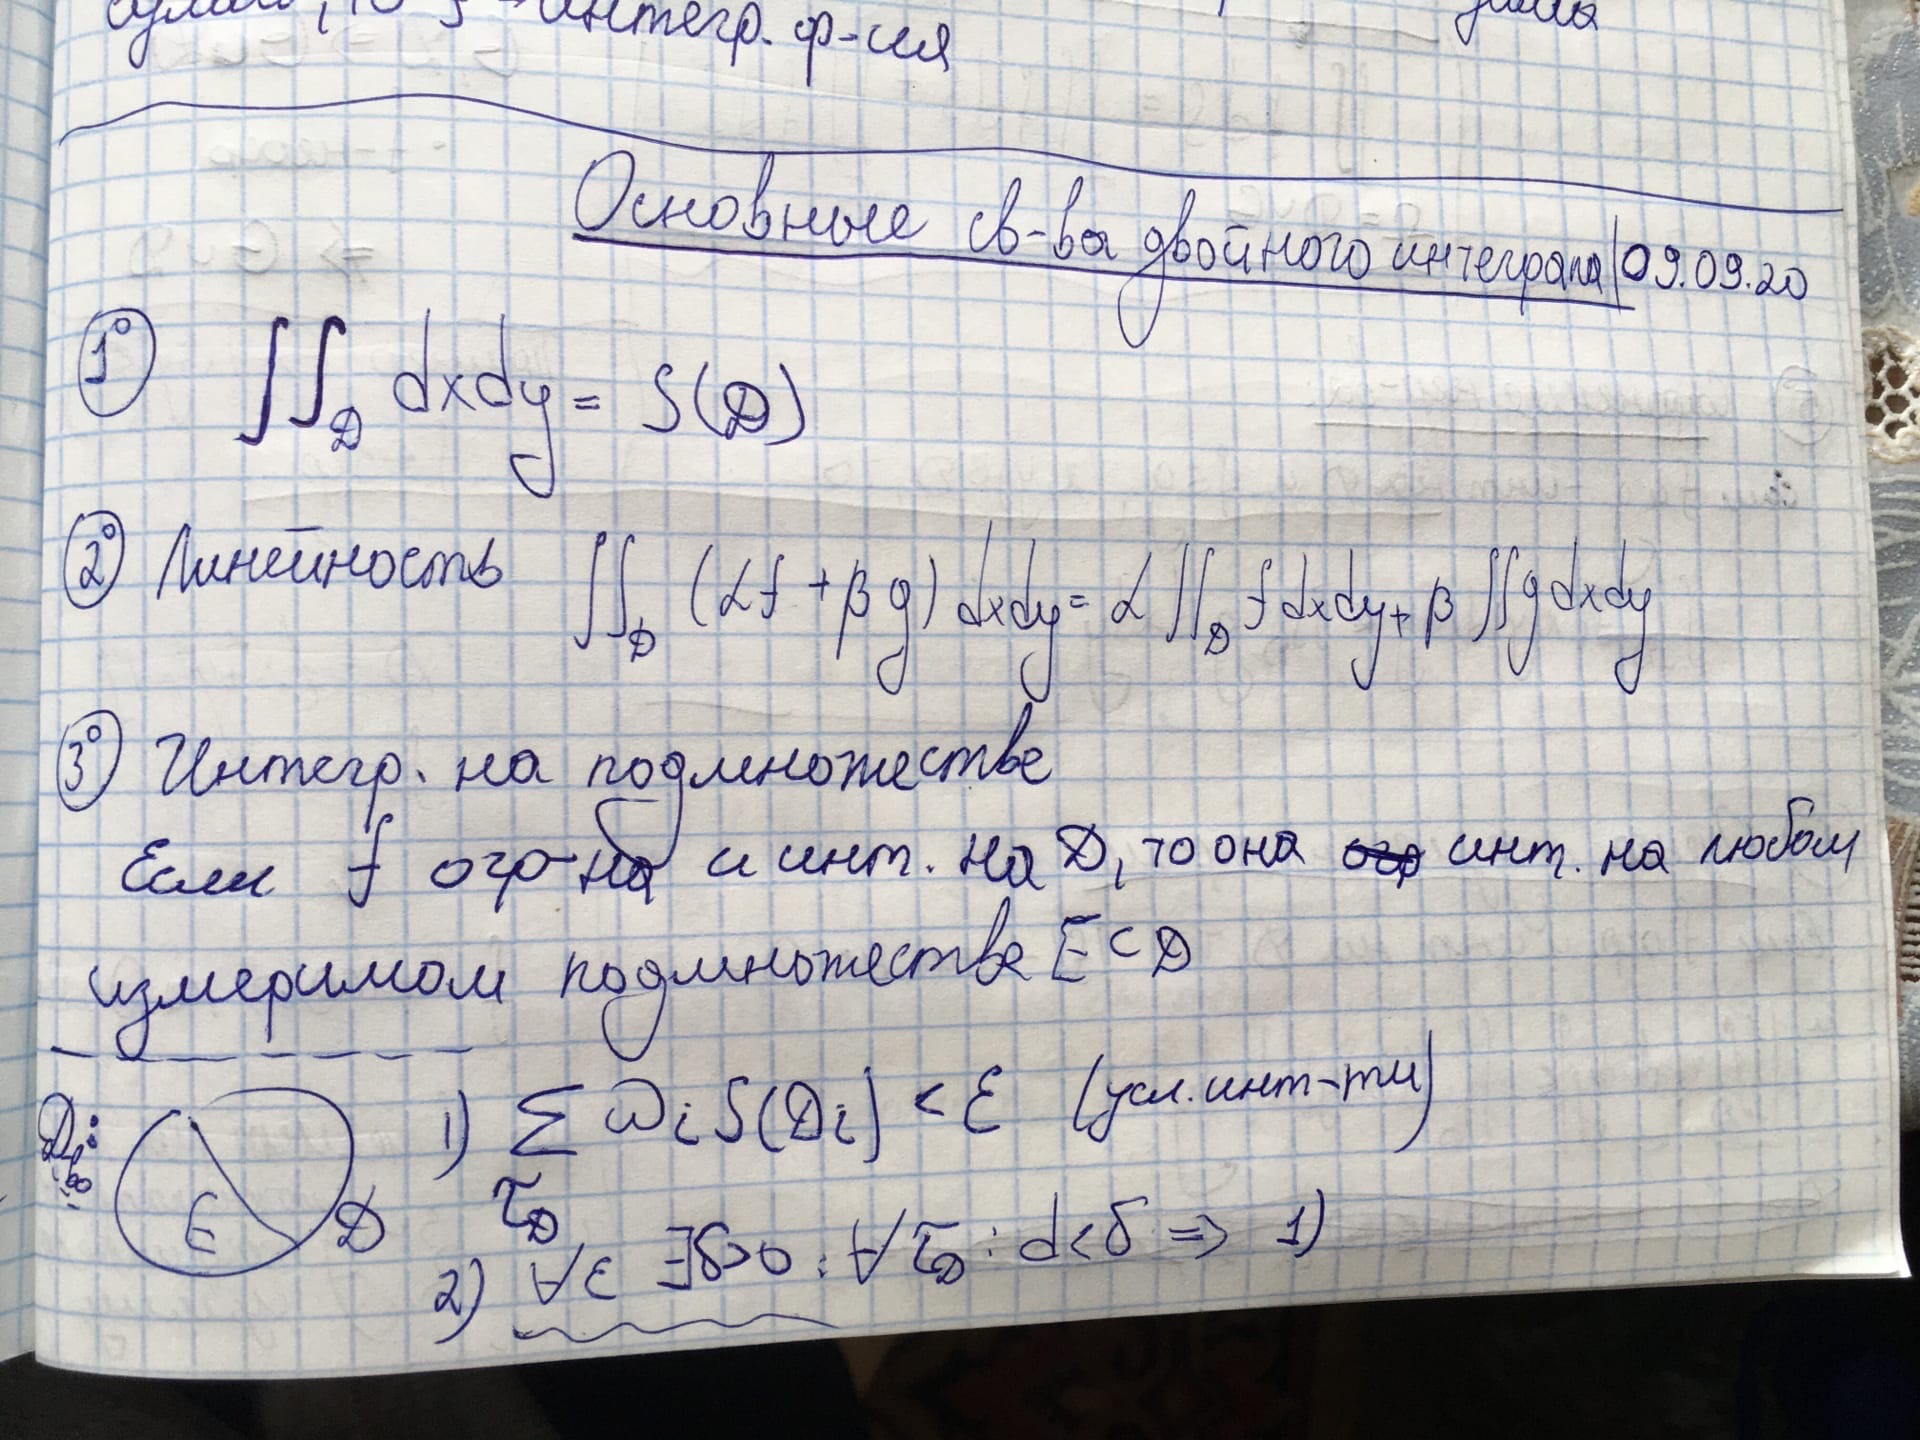 интегр. ф-ия
Основные св-ва двойного интеграла | 09.09.20
1° ∬_D dxdy = S(D)
2° Линейность ∬_D (αf + βg) dxdy = α ∬_D f dxdy + β ∬ g dxdy
3° Интегр. на подмножестве
Если f огр-на и инт. на D, то она инт. на любом
измеримом подмножестве E ⊂ D
Д-во:
E D
1) ∑_{τ_D} ω_i S(D_i) < ε (усл. инт-ти)
2) ∀ε ∃δ>0 : ∀τ_D : d<δ ⇒ 1)